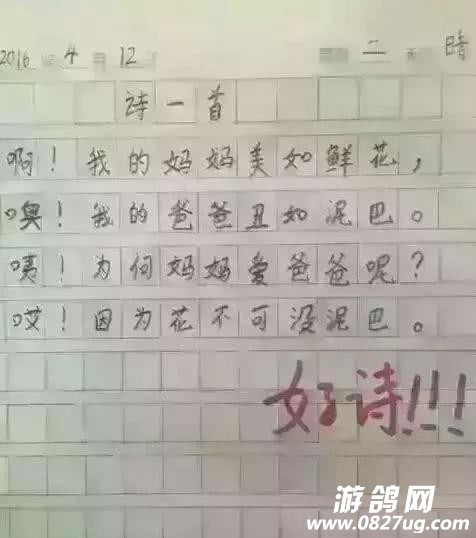 2016 年 4 月 12 日 星期 二 天气 晴
诗一首
啊！我的妈妈美如鲜花，
噢！我的爸爸丑如泥巴。
咦！为何妈妈爱爸爸呢？
哎！因为花不可没泥巴。
好诗!!!
游鸽网
www.0827ug.com